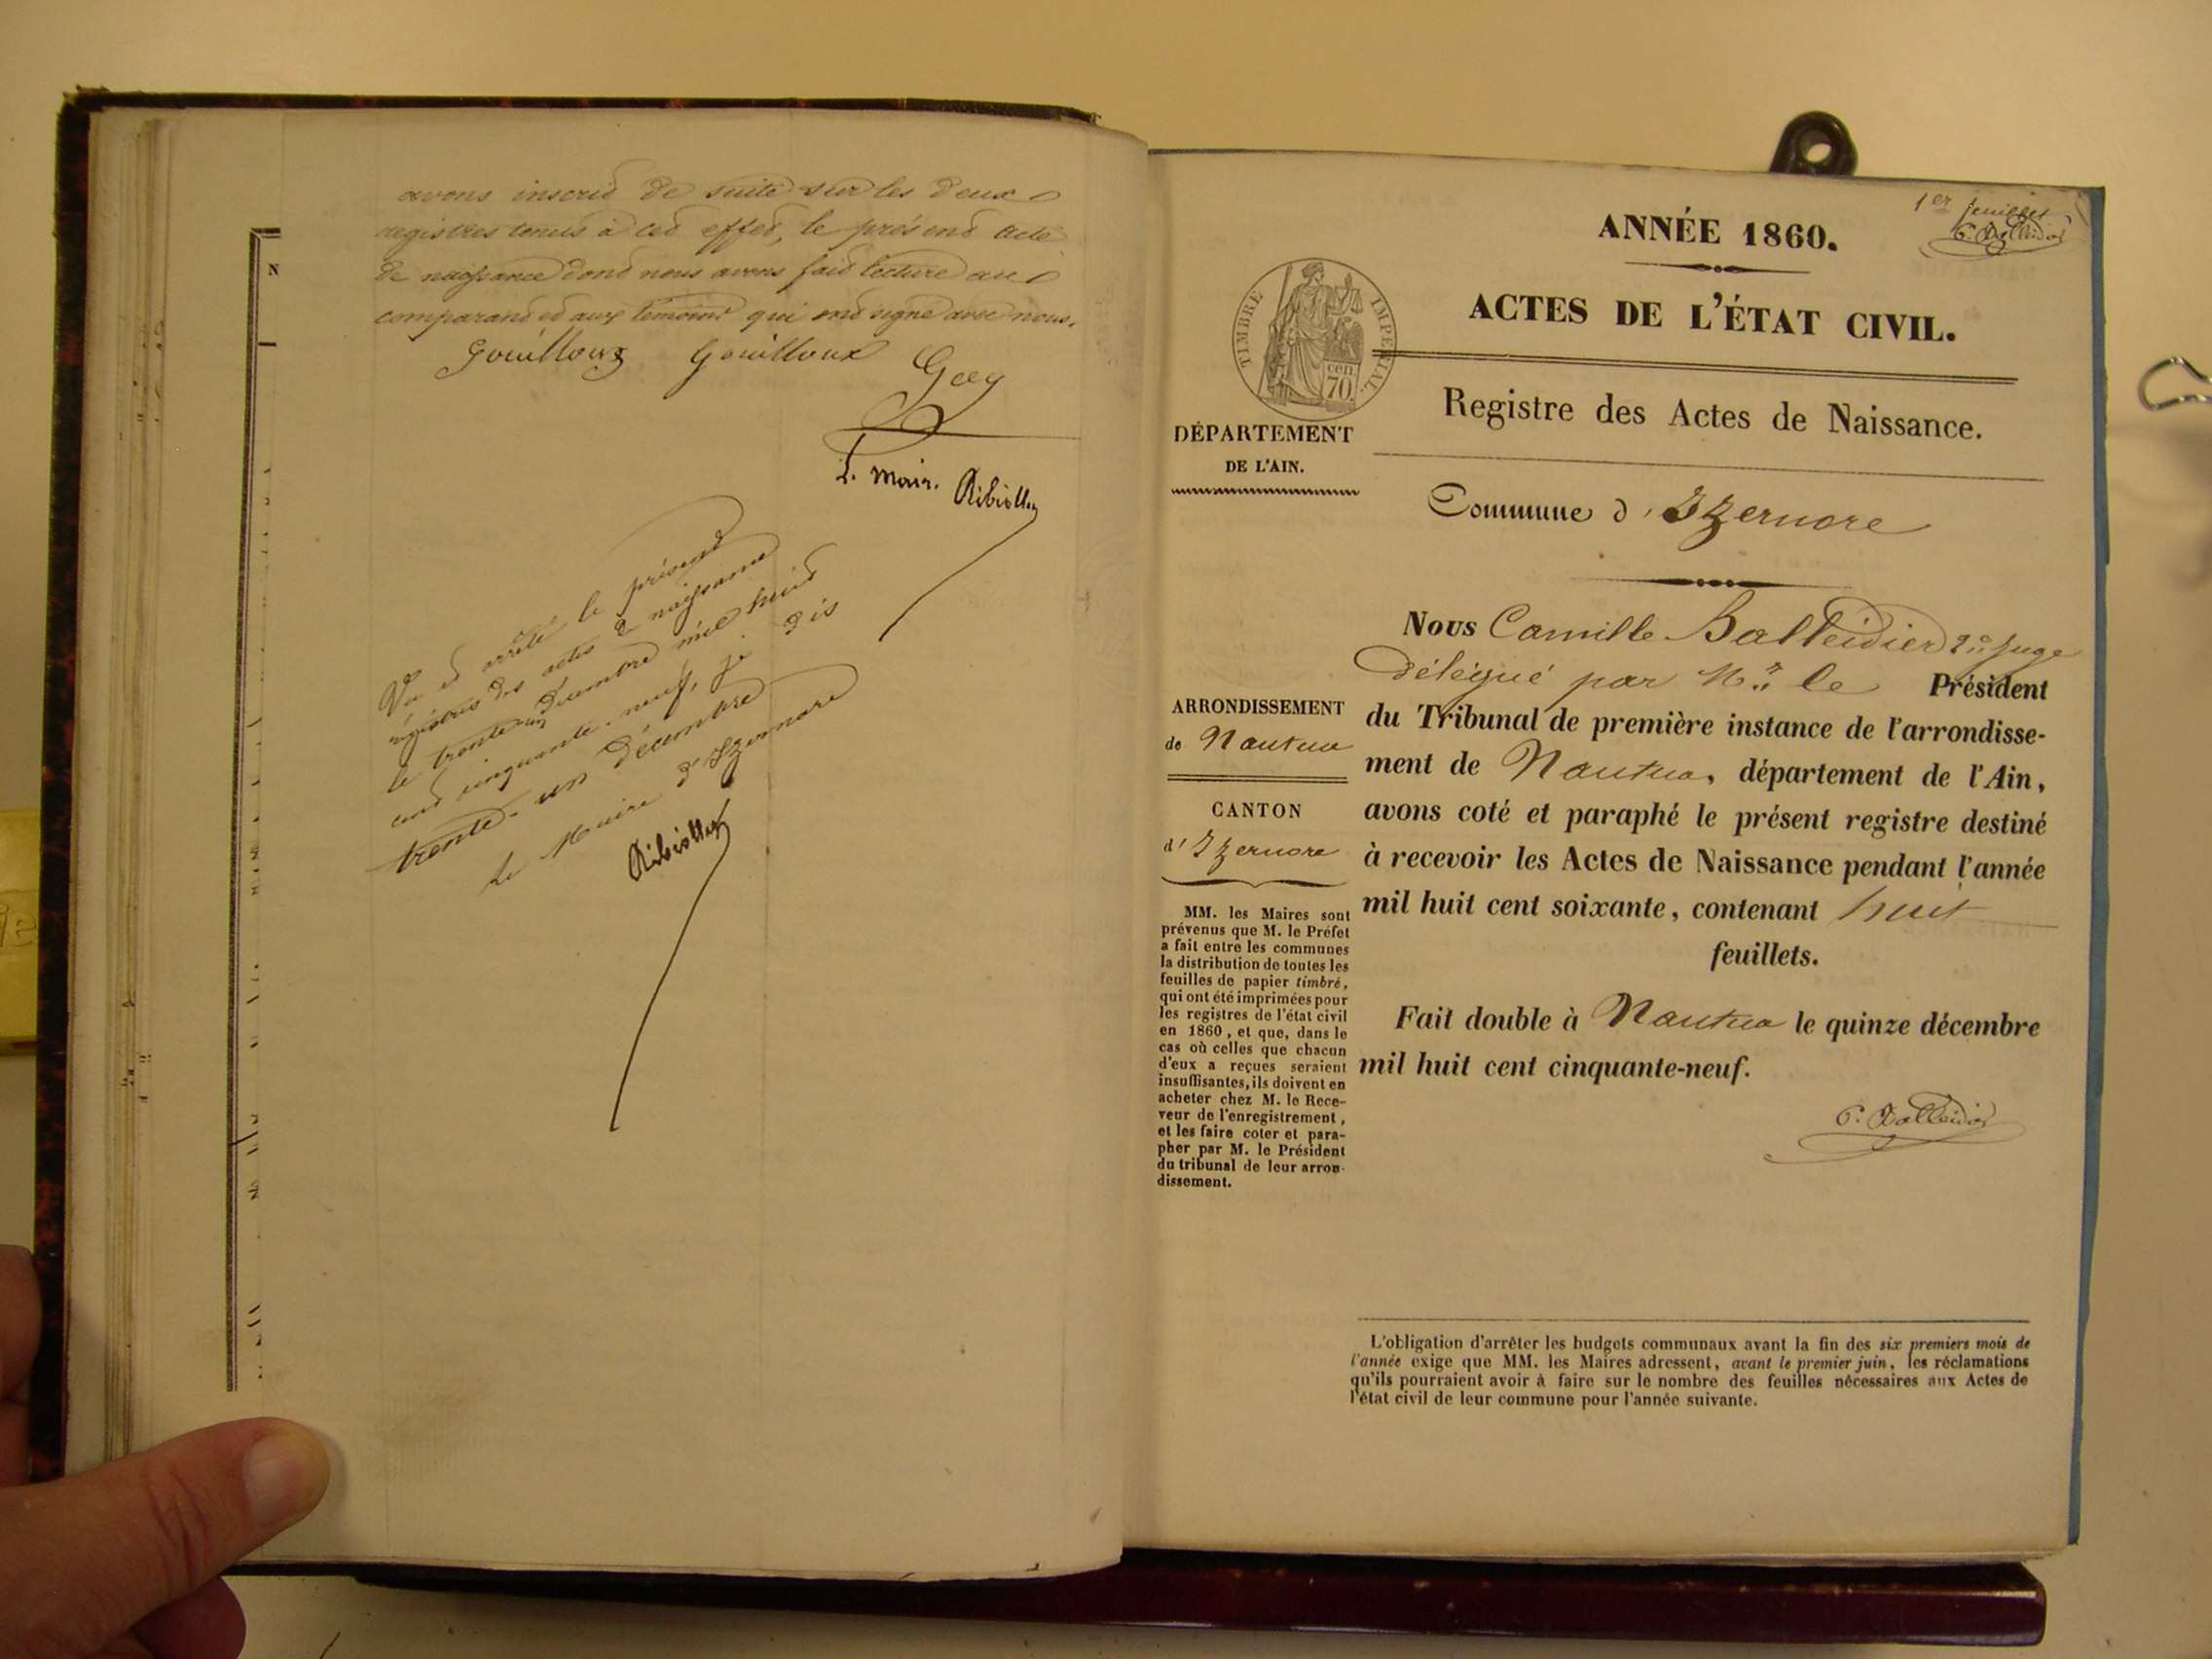 avons inscrit de suite sur les deux
registres tenus à cet effet, le présent acte
de naissance dont nous avons fait lecture au
comparant et aux témoins qui ont signé avec nous.
Gouilloux Gouilloux Gay
L. Maire. Ribiollet
Vu et arrêté le présent
régistre des actes de naissance
le trente un décembre mil huit
cent cinquante-neuf, je dis
trente-un décembre
Le Maire d'Izernore
Ribiollet
N
1er feuillet
C. Balleidier
ANNÉE 1860.
ACTES DE L'ÉTAT CIVIL.
TIMBRE IMPÉRIAL
70 cen.
Registre des Actes de Naissance.
DÉPARTEMENT
DE L'AIN.
Commune d'Izernore
ARRONDISSEMENT
de Nantua
CANTON
d'Izernore
MM. les Maires sont
prévenus que M. le Préfet
a fait entre les communes
la distribution de toutes les
feuilles de papier timbré,
qui ont été imprimées pour
les registres de l'état civil
en 1860, et que, dans le
cas où celles que chacun
d'eux a reçues seraient
insuffisantes, ils doivent en
acheter chez M. le Rece-
veur de l'enregistrement,
et les faire coter et para-
pher par M. le Président
du tribunal de leur arron-
dissement.
Nous Camille Balleidier Juge
délégué par Mr. le Président
du Tribunal de première instance de l'arrondisse-
ment de Nantua, département de l'Ain,
avons coté et paraphé le présent registre destiné
à recevoir les Actes de Naissance pendant l'année
mil huit cent soixante, contenant huit
feuillets.
Fait double à Nantua le quinze décembre
mil huit cent cinquante-neuf.
C. Balleidier
L'obligation d'arrêter les budgets communaux avant la fin des six premiers mois de
l'année exige que MM. les Maires adressent, avant le premier juin, les réclamations
qu'ils pourraient avoir à faire sur le nombre des feuilles nécessaires aux Actes de
l'état civil de leur commune pour l'année suivante.